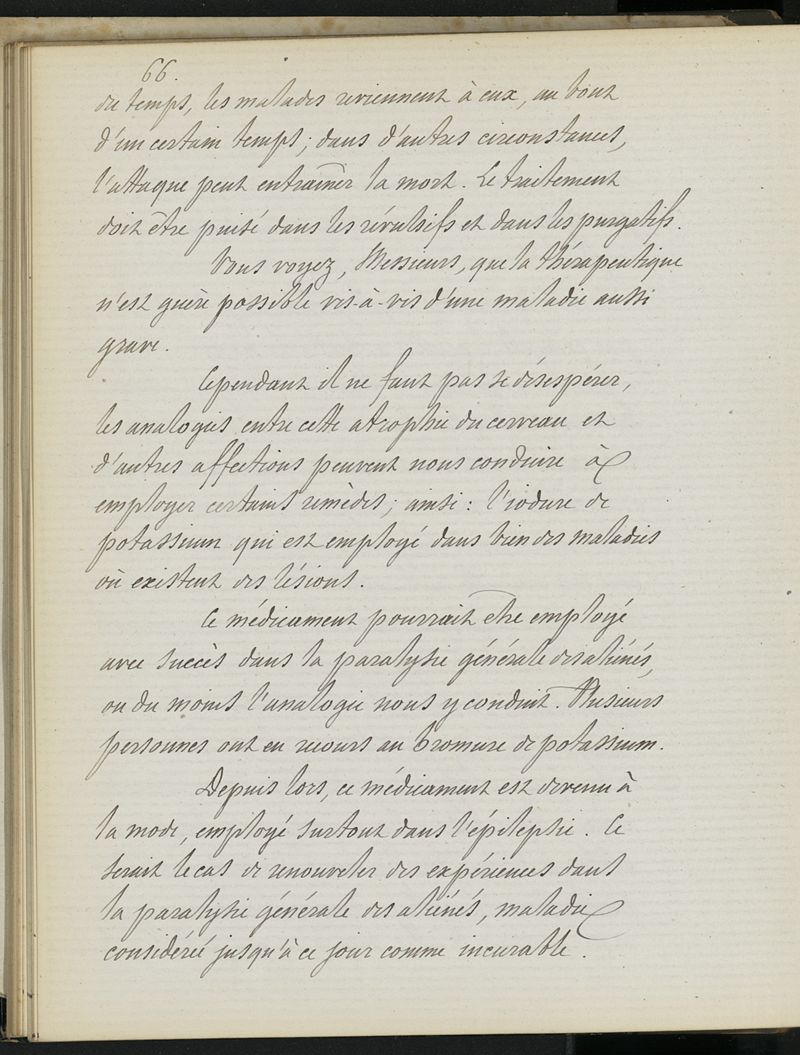 66.
du temps, les malades reviennent à eux, au bout
d'un certain temps; dans d'autres circonstances,
l'attaque peut entraîner la mort. Le traitement
doit être puisé dans les révulsifs et dans les purgatifs.
Vous voyez, Messieurs, que la thérapeutique
n'est guère possible vis-à-vis d'une maladie aussi
grave.
Cependant il ne faut pas se désespérer,
les analogies entre cette atrophie du cerveau et
d'autres affections peuvent nous conduire à
employer certains remèdes; ainsi: l'iodure de
potassium qui est employé dans bien des maladies
où existent des lésions.
Ce médicament pourrait être employé
avec succès dans la paralysie générale des aliénés,
ou du moins l'analogie nous y conduit. Plusieurs
personnes ont eu recours au bromure de potassium.
Depuis lors, ce médicament est devenu à
la mode, employé surtout dans l'épilepsie. Ce
serait le cas de renouveler des expériences dans
la paralysie générale des aliénés, maladie
considérée jusqu'à ce jour comme incurable.